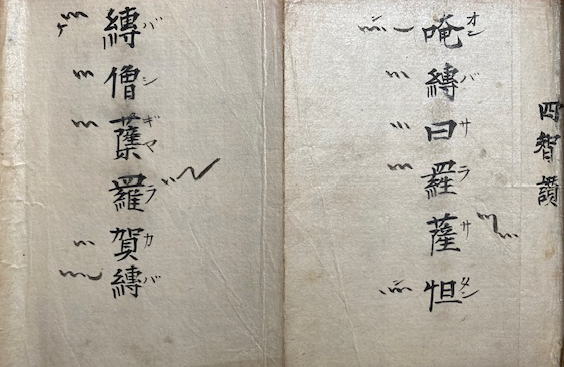 四智讚
唵縛曰羅薩怛
オンバサラサタン
縛僧蘖羅賀縛
バシギマラカバ